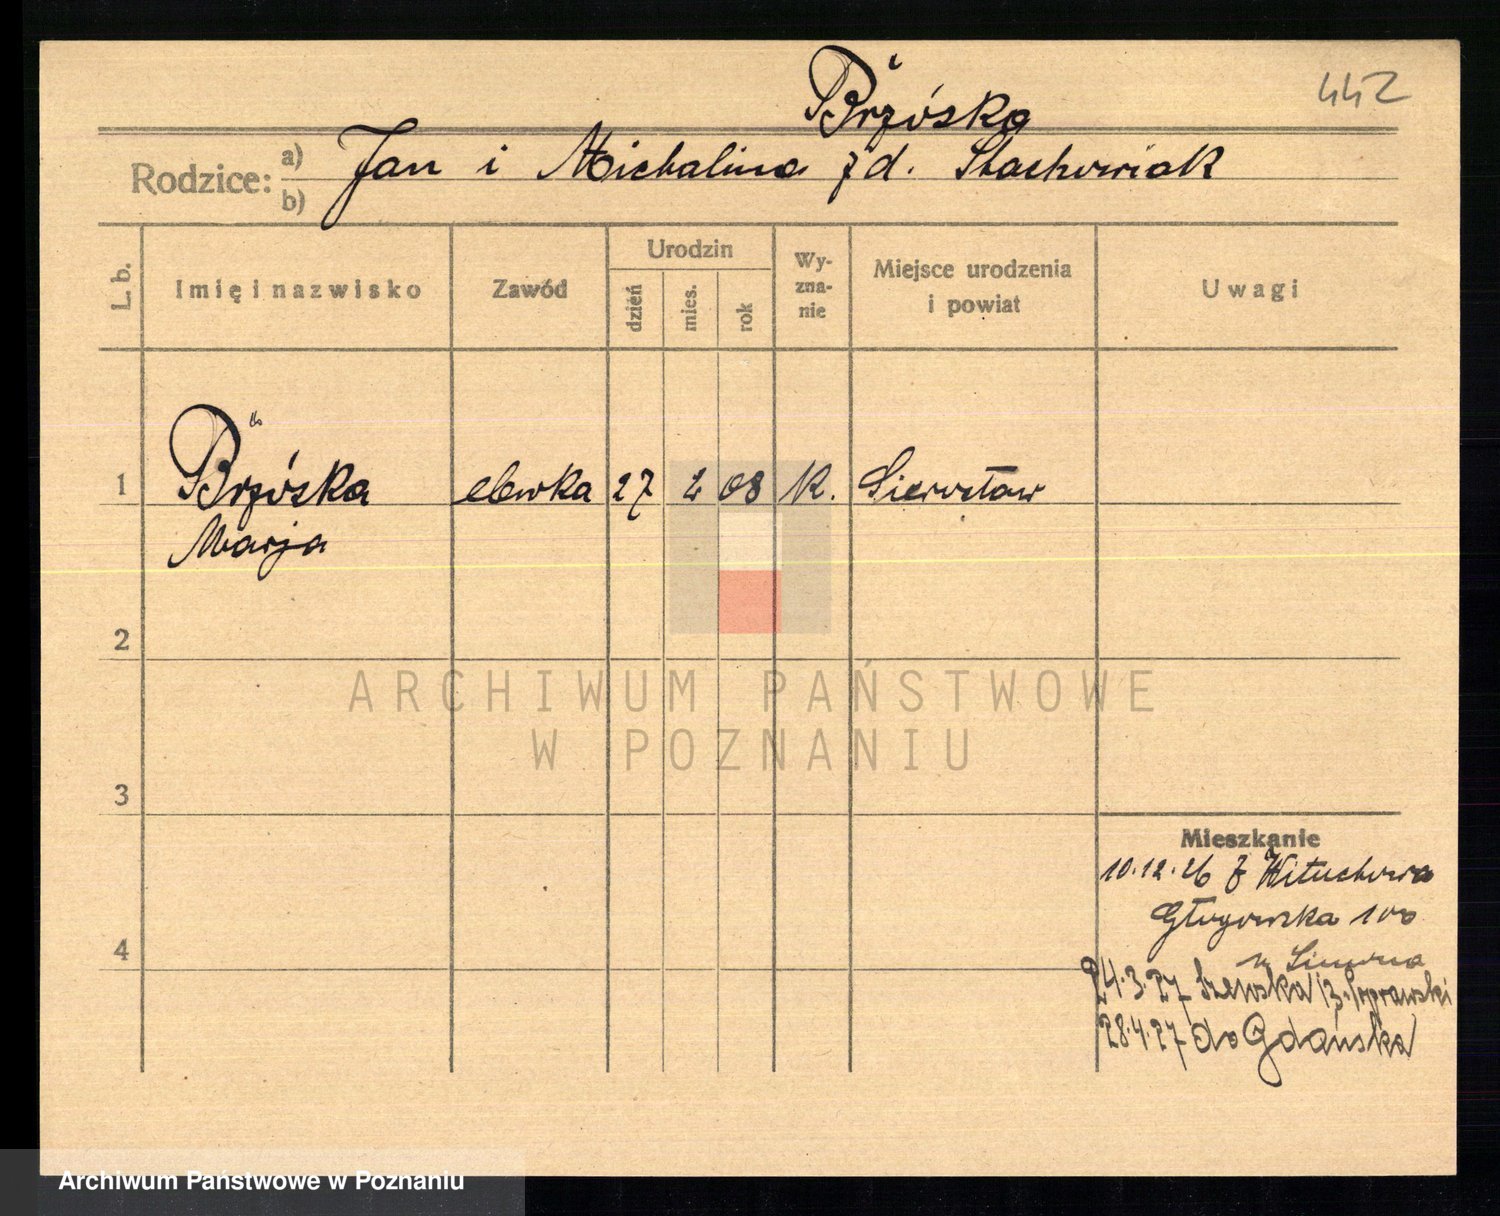 442
Brzóska
Rodzice: a) b) Jan i Michalina zd. Stachowiak
L. b. Imię i nazwisko Zawód Urodzin dzień mies. rok Wy-zna-nie Miejsce urodzenia i powiat Uwagi
1 Brzóska elewka 27 2 08 K. Sierosław
Marja
2
ARCHIWUM PAŃSTWOWE
W POZNANIU
3
Mieszkanie
10.12.26 z Wituchowa
Głogowska 100
4
24.3.27 Szewska 13.
28.4.27 do Gdańska
Archiwum Państwowe w Poznaniu